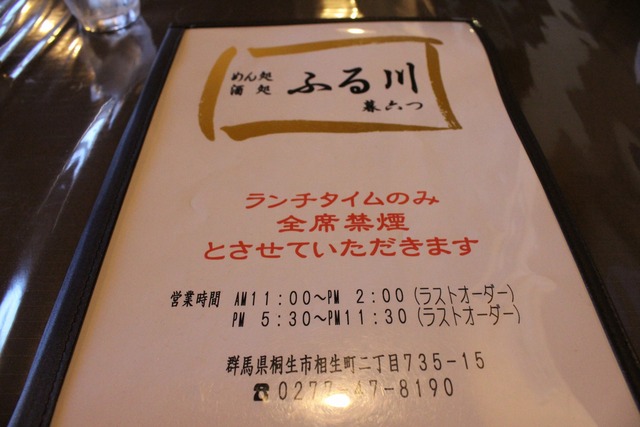 めん処
酒処
ふる川
暮六つ
ランチタイムのみ
全席禁煙
とさせていただきます
営業時間 AM11:00~PM 2:00(ラストオーダー)
PM 5:30~PM11:30(ラストオーダー)
群馬県桐生市相生町二丁目735-15
☎0277-47-8190